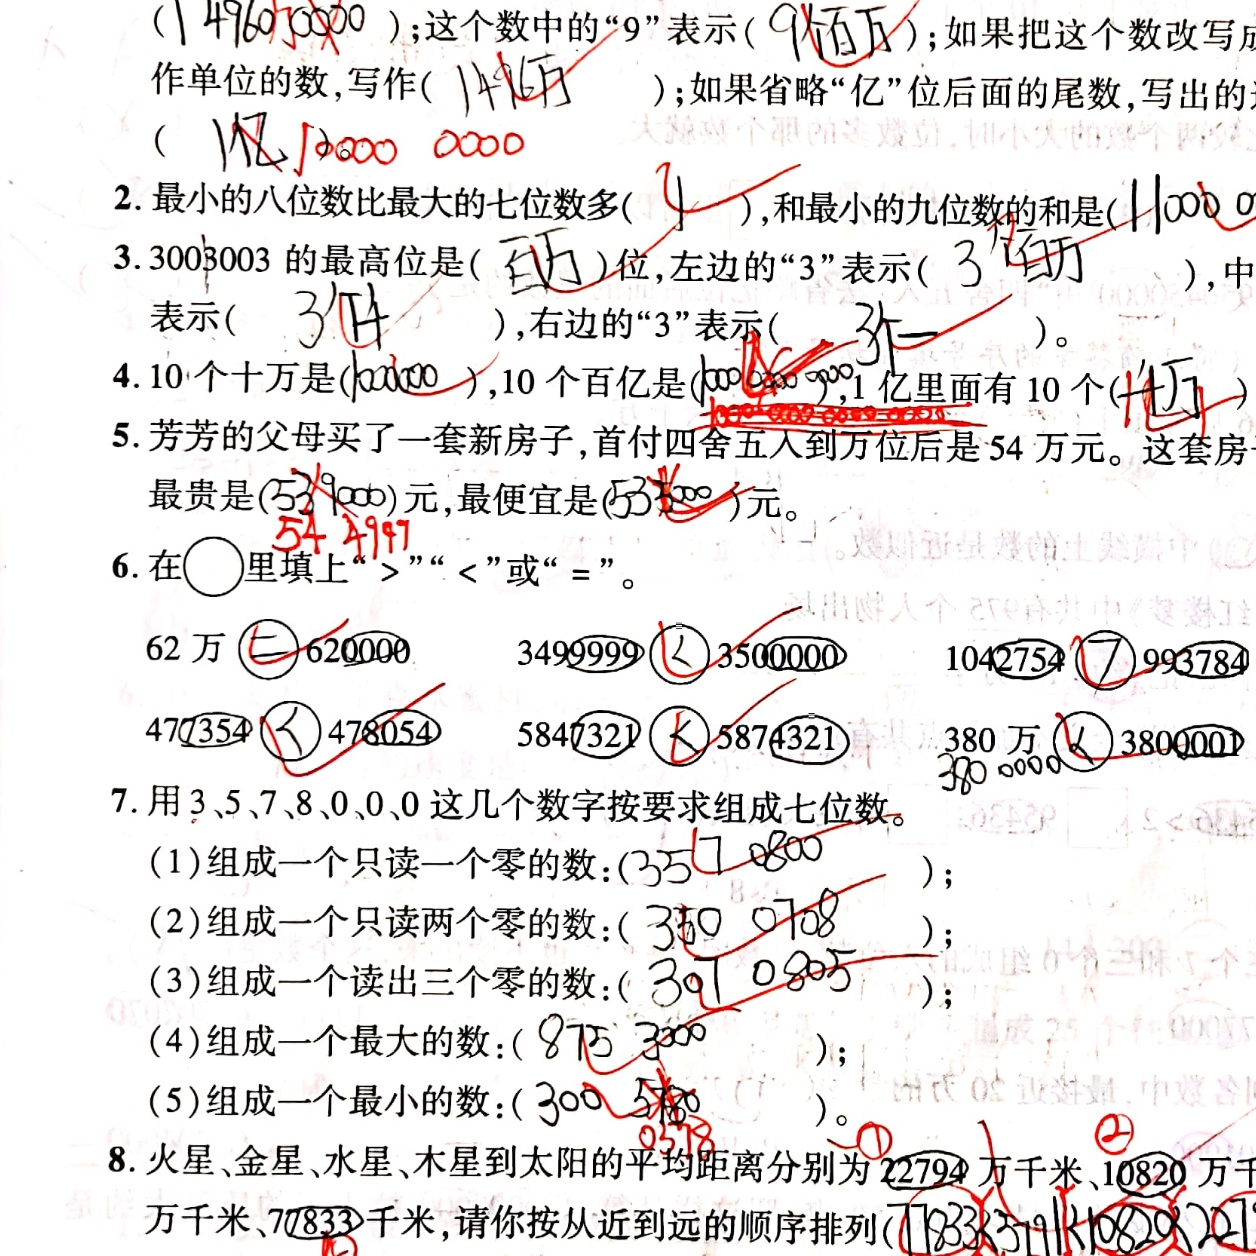 (14960 0000);这个数中的“9”表示(9个百万);如果把这个数改写成
作单位的数,写作(1496万);如果省略“亿”位后面的尾数,写出的
(1亿)。0000 0000
2. 最小的八位数比最大的七位数多(1),和最小的九位数的和是(11000 0
3. 3003003 的最高位是(百万)位,左边的“3”表示(3个百万),中
表示(3个千),右边的“3”表示(3个一)。
4. 10 个十万是(1000000),10 个百亿是(1000 0000 0000),1 亿里面有 10 个(千万)
1000 0000 0000
5. 芳芳的父母买了一套新房子,首付四舍五入到万位后是 54 万元。这套房
最贵是(539000)元,最便宜是(535000)元。
54 4999
6. 在○里填上“>”“<”或“=”。
62 万 = 620000 3499999 < 3500000 1042754 > 993784
477354 < 478054 5847321 < 5874321 380 万 < 3800001
380 0000
7. 用 3、5、7、8、0、0、0 这几个数字按要求组成七位数。
(1)组成一个只读一个零的数:(357 0800);
(2)组成一个只读两个零的数:(350 0708);
(3)组成一个读出三个零的数:(307 0805);
(4)组成一个最大的数:(875 3000);
(5)组成一个最小的数:(300 5780)。
0578
① ②
8. 火星、金星、水星、木星到太阳的平均距离分别为 22794 万千米、10820 万千
万千米、77833 千米,请你按从近到远的顺序排列(77833